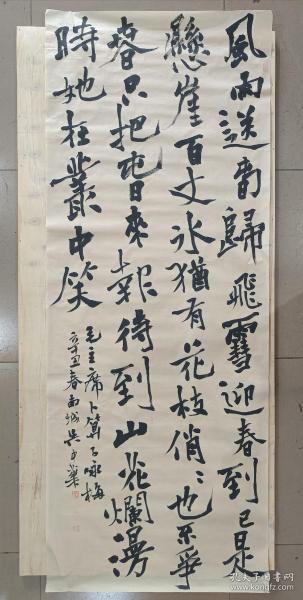 風雨送春歸飛雪迎春到已是
懸崖百丈冰猶有花枝俏〻也不爭
春只把春來報待到山花爛漫
時她在叢中笑
毛主席卜算子咏梅
辛丑春南城吴子
孔夫子旧书网